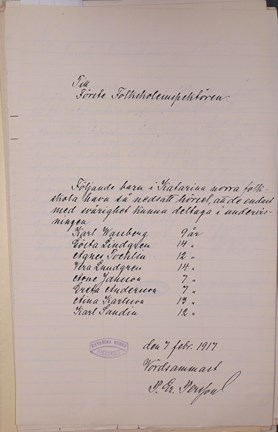 Till
Förste Folkskoleinspektören.
Följande barn i Katarina norra folk-
skola hava så nedsatt hörsel, att de endast
med svårighet kunna deltaga i undervis-
ningen
Karl Wanberg 9 år
Gösta Lindgren 14 "
Agnes 12 "
Vera Lundgren 14 "
Arne Jansson 7 "
Greta Andersson 7 "
Anna Karlsson 13 "
Karl Sandin 12 "
den 7 febr. 1917
Vördsammast
P. Er. Persson
KATARINA NORRA